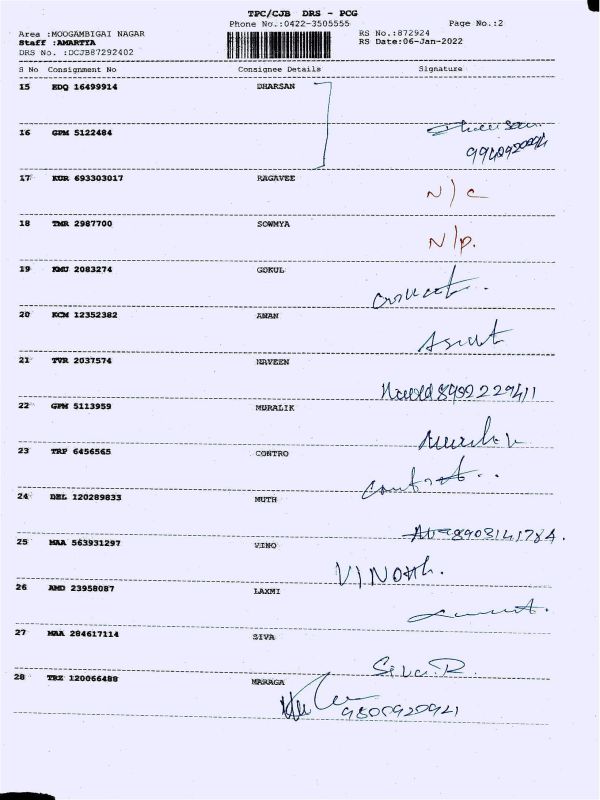 TPC/CJB DRS - PCG
Phone No.:0422-3505555
Page No.:2
Area :MOOGAMBIGAI NAGAR
RS No.:872924
Staff :AMARTYA
RS Date:06-Jan-2022
DRS No. :DCJB87292402
S No Consignment No Consignee Details Signature
15 EDQ 16499914 DHARSAN
16 GPM 5122484
17 KUR 693303017 RAGAVEE
N/C
18 TMR 2987700 SOWMYA
N/P.
19 KMU 2083274 GOKUL
20 KCM 12352382 ANAN
21 TVR 2037574 NAVEEN
22 GPM 5113959 MURALIK
23 TRP 6456565 CONTRO
24 DEL 120289833 MUTH
8903141784.
25 MAA 563931297 VINO
VINOth.
26 AMD 23958087 LAXMI
27 MAA 284617114 SIVA
Siva.R
28 TRZ 120066488 MARAGA